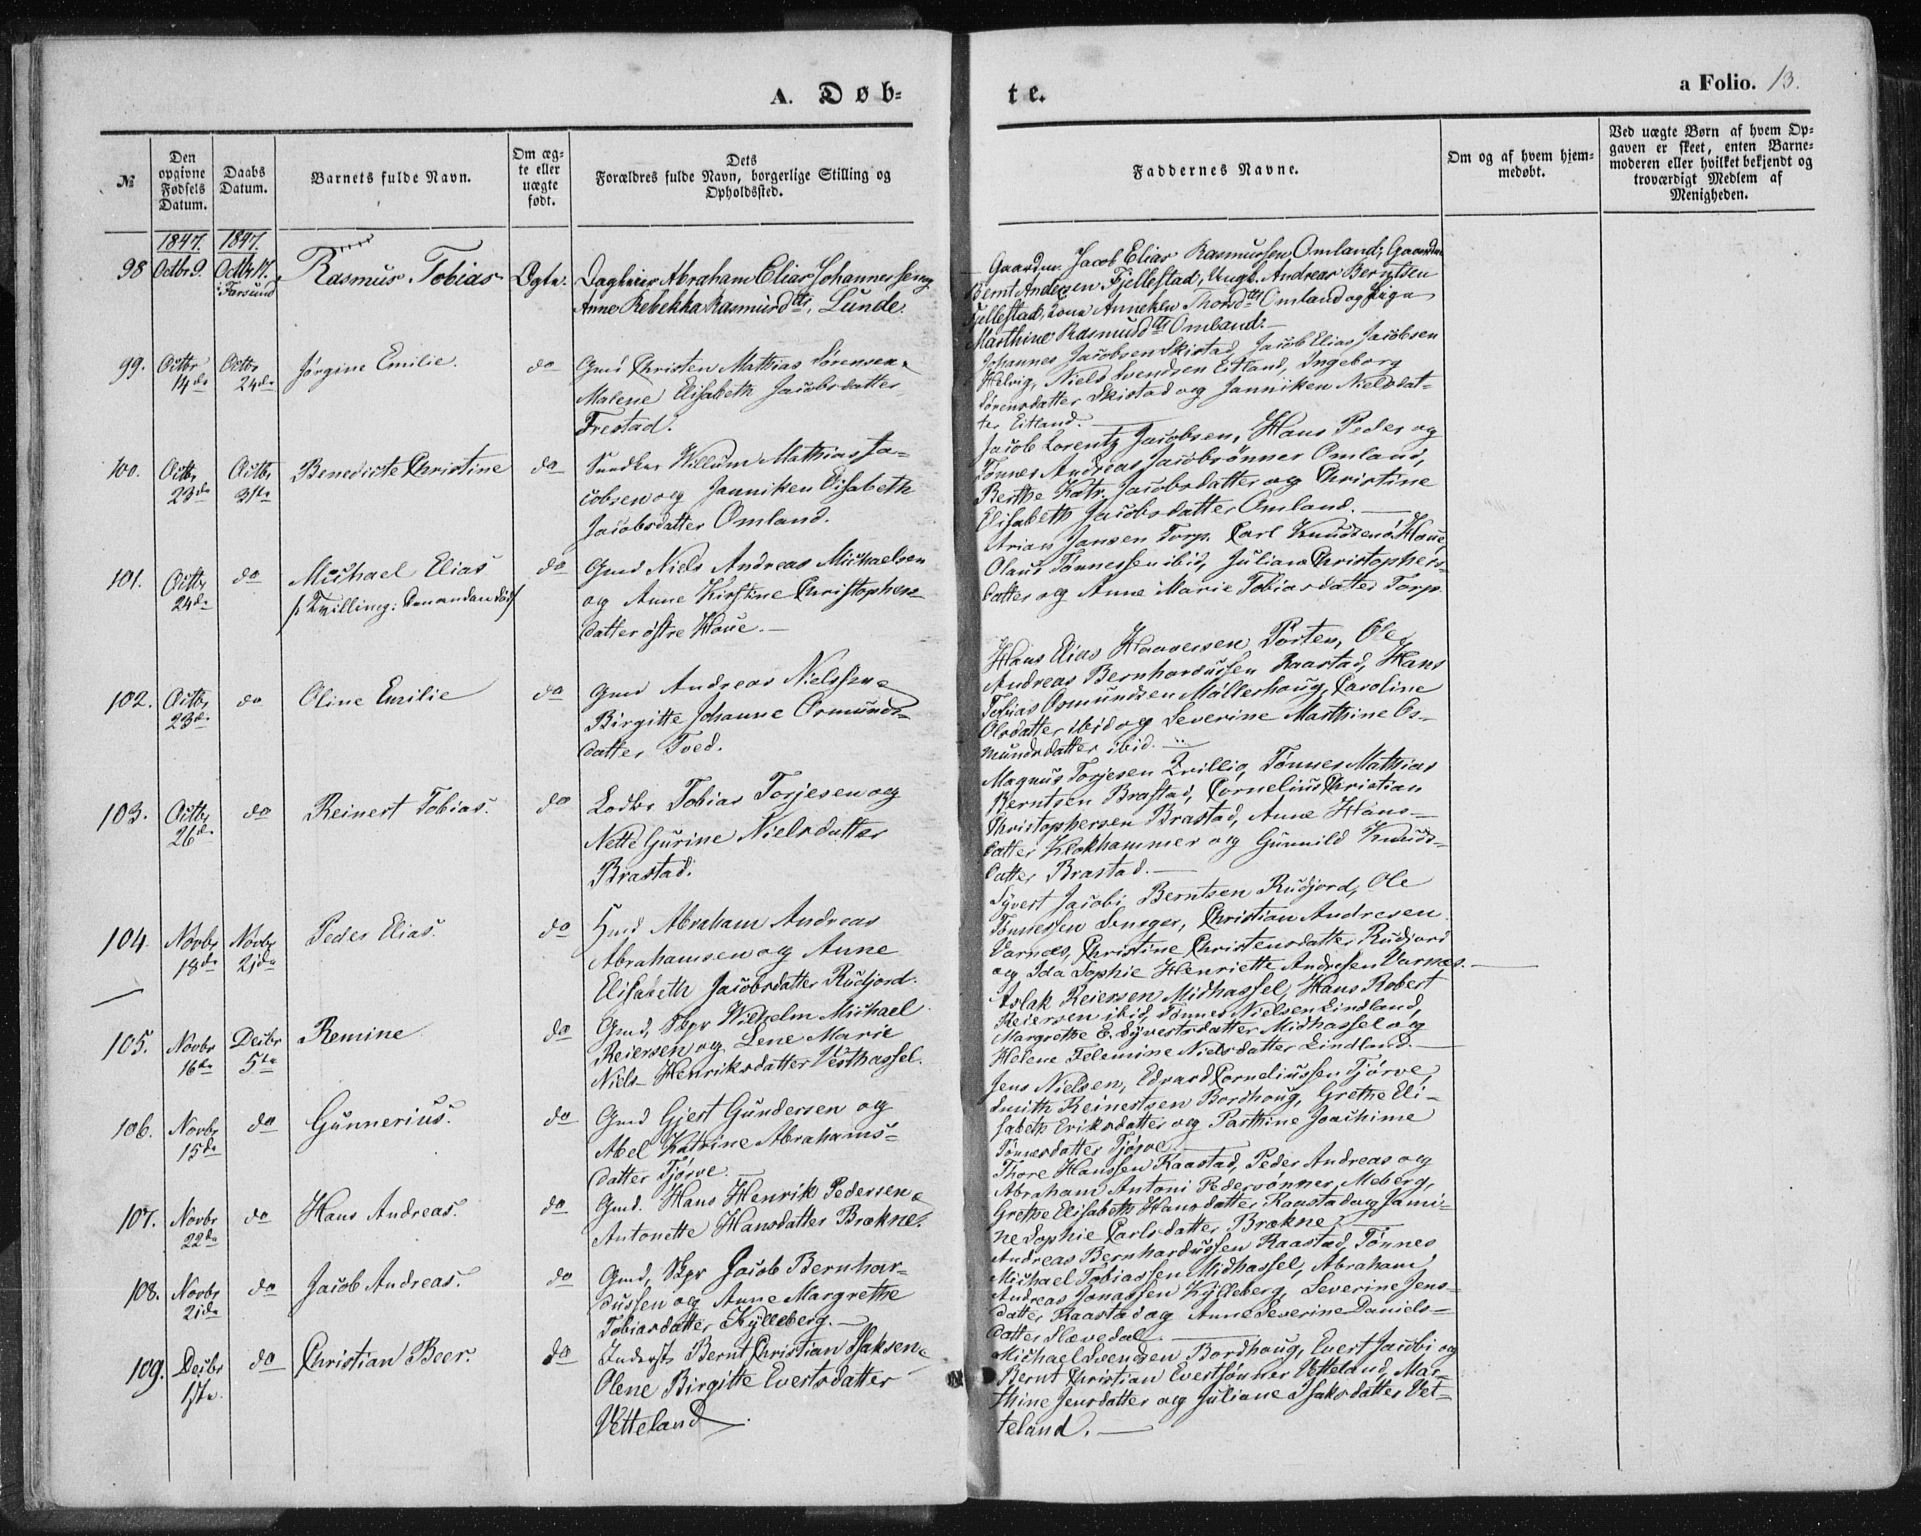 A. Døb=
te.
a Folio. 13.
№
Den opgivne Fødsels Datum.
Daabs Datum.
Barnets fulde Navn.
Om æg=
te eller
uægte
født.
Dets
Forældres fulde Navn, borgerlige Stilling og
Opholdssted.
Faddernes Navne.
Om og af hvem hjem=
medøbt.
Ved uægte Børn af hvem Op=
gaven er skeet, enten Barne=
moderen eller hvilket bekjendt og
troværdigt Medlem af
Menigheden.
1847. 1847.
98 Octbr 9. Octbr 17. i Farsund Rasmus Tobias Ægte.
Abraham Elias Johannessen og
Anne Rebekka Rasmusdtr, Lunde.
Gaardm. Jacob Elias Rasmussen Omland, Gaardm
Bernt Andersen Fjellestad, Ungk. Andreas Berntsen
Fjellestad, Kone Anneken Thorsdtr Omland og Pige
Marthine Rasmusdtr Omland.
99. Octbr 14de Octbr 24de Jørgine Emilie. do
Gmd Christen Mathias Sørensen &
Malene Elisabeth Jacobsdatter
Frestad.
Johannes Jacobsen Skistad, Jacob Elias Jacobsen
Helvig, Niels Svendsen Eitland, Ingeborg
Sørensdatter Skistad og Janniken Nielsdat=
ter Eitland.
100. Octbr 23de Octbr 31te Benedicte Christine do
Willum Mathias Ja=
cobsen og Janniken Elisabeth
Jacobsdatter Omland.
Jacob Lorentz Jacobsen, Hans Peder og
Tønnes Andreas Jacobsønner Omland,
Berthe Katr. Jacobsdatter og Christine
Elisabeth Jacobsdatter Omland.
101. Octbr 24de do Michael Elias
/: Tvilling: Den anden død/ do
Gmd Niels Andreas Michaelsen
og Anne Kirstine Christophers=
datter østre Haue.
Arian Jansen Torp, Carl Knudsen ø. Haue,
Olaus Tønnessen ibid, Juliane Christophers=
datter og Anne Marie Tobiasdatter Torp
102. Octbr 23de do Oline Emilie do
Gmd Andreas Nielssen &
Birgitte Johanne Osmunds=
datter Tved.
Hans Elias Haaversen Porten, Ole
Andreas Bernhardussen Raastad, Hans
Tobias Osmundsen Møllerhaug, Caroline
Olsdatter ibid og Severine Marthine Os=
mundsdatter ibid.
103. Octbr 26de do Reinert Tobias. do
Lods Tobias Torjesen og
Nette Gurine Nielsdatter
Brastad.
Magnus Torjesen Qvillig, Tønnes Mathias
Berntsen Brastad, Cornelius Christian
Christophersen Brastad, Anne Hans=
datter Klokhammer og Gunnild Knuds=
datter Brastad.
104. Novbr 18de Novbr 21de Peder Elias. do
Abraham Andreas
Abrahamsen og Anne
Elisabeth Jacobsdatter Rudjord.
Syvert Jacobi Berntsen Rudjord, Ole
Tønnessen, Christian Andresen
Varnes, Christine Christensdatter Rudjord
og Ida Sophie Henriette Andresen Varnes.
105. Novbr 16de Decbr 5te Remine do
Gmd, Skpr Wilhelm Michael
Reiersen og Lene Marie
Niels-Henriksdatter Vesthassel.
Aslak Reiersen Midhassel, Hans Robert
Reiersen ibid, Tønnes Nielsen Lindland,
Margrethe E. Syvertsdatter Midhassel og
Helene Telemine Nielsdatter Lindland.
106. Novbr 15de do Gunnerius. do
Gmd Gjert Gundersen og
Abel Katrine Abrahams=
datter Tjørve.
Jens Nielsen, Edvard Corneliussen Tjørve,
Smith Reinertsen Bordhoug, Grethe Eli=
sabeth Eriksdatter og Parthine Joachime
Tønnesdatter Tjørve.
107. Novbr 22de do Hans Andreas. do
Gmd. Hans Henrik Pedersen &
Antonette Hansdatter Brækne.
Thore Hanssen Raastad, Peder Andreas og
Abraham Antoni Pedersønner Meberg,
Grethe Elisabeth Hansdatter Raastad og Jami=
ne Sophie Carlsdatter Brækne
108. Novbr 21de do Jacob Andreas. do
Gmd, Skpr Jacob Bernhar=
dussen og Anne Margrethe
Tobiasdatter Kylleberg.
Andreas Bernhardussen Raastad, Tønnes
Michael Tobiassen Midhassel, Abraham
Andreas Jonassen Kylleberg, Severine Jens=
datter Raastad og Anne Severine Daniels=
datter Slævedal.
109. Decbr 1ste do Christian Beer. do
Inderst Bernt Christian Isaksen &
Olene Birgitte Evertsdatter
Vetteland.
Michael Svendsen Bordhoug, Evert Jacobi og
Bernt Christian Evertsønner Vetteland, Mar=
thine Jensdatter og Juliane Isaksdatter Vet=
teland.